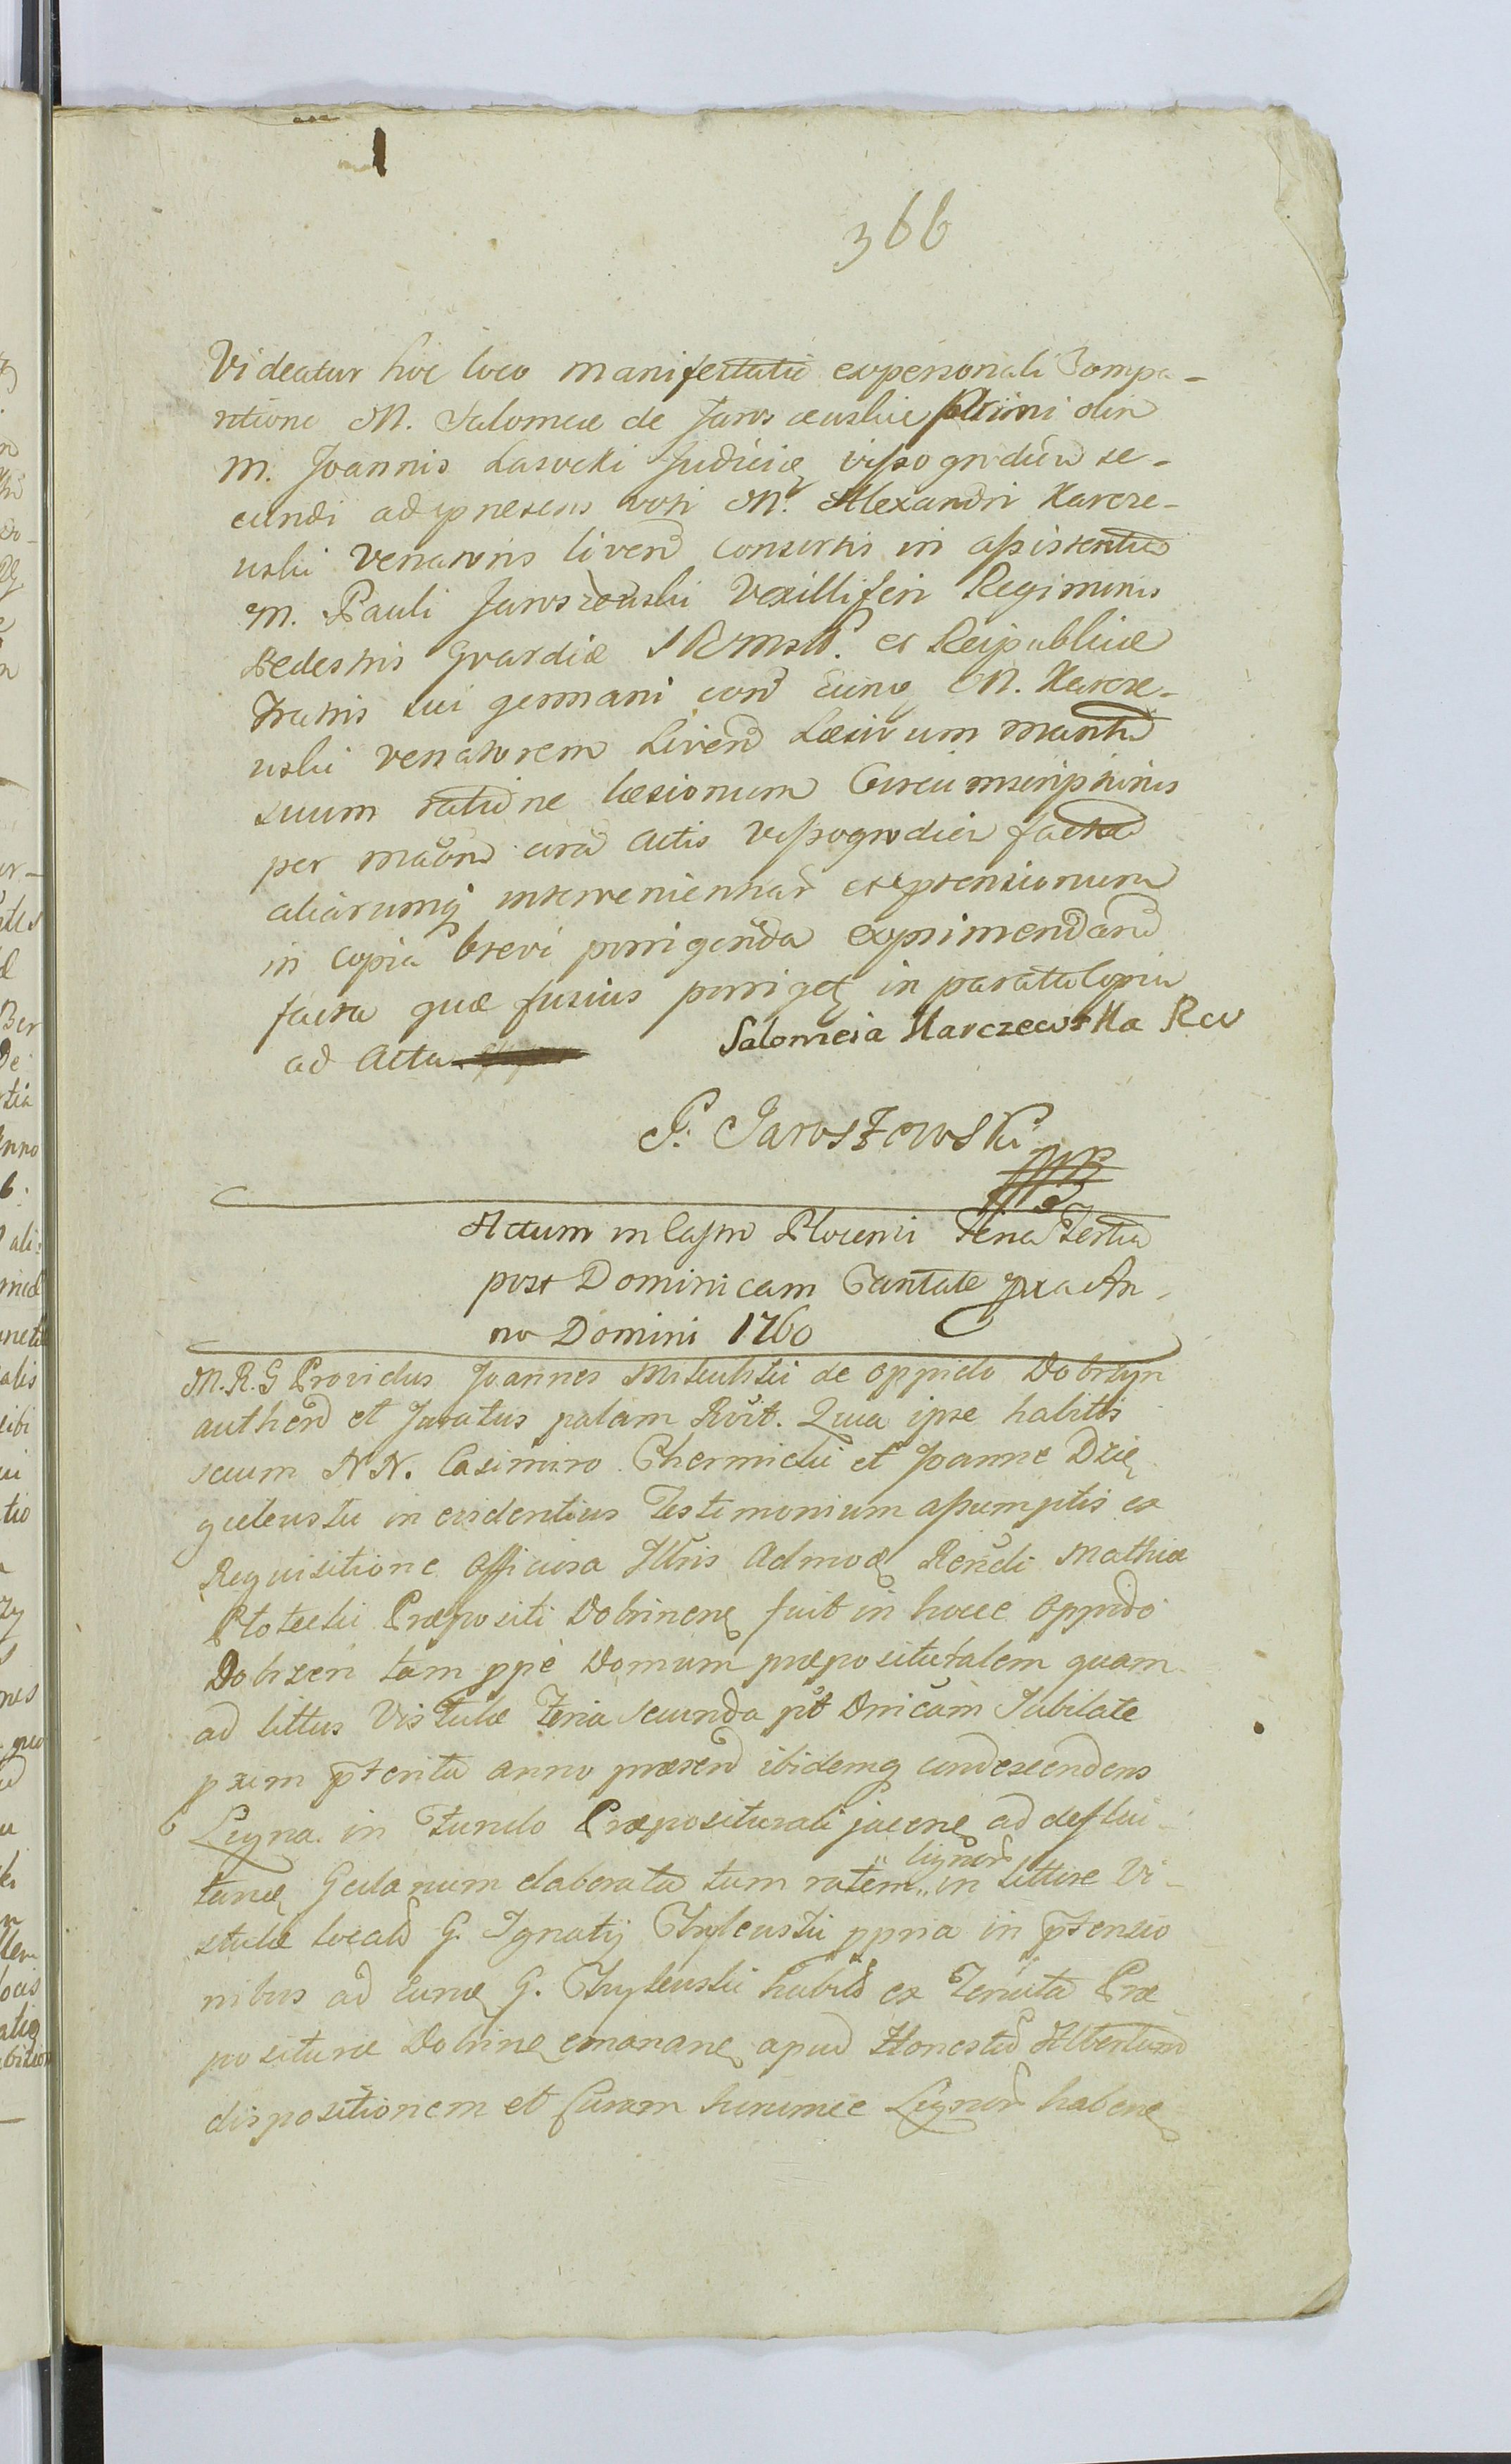 366
Videatur hoc loco manifestatio expersonali Compa-
ritione M. Salomeae de Jaroszewskie primi olim
M. Joannis Lasocki Judicis vissogrodien se-
cundi ad praesens voti M. Alexandri Karcze-
wski Venatoris liven consortis in assistentia
M. Pauli Jaroszewski Vexilliferi Regiminis
Pedestris Gvardiae et Reipublicae
Fratris sui germani con Eunq M. Karcze-
wski venatorem Liven Laesivum maritu
suum ratione laesionum Circumscriptionis
per cora Actis vissogrodien facta
aliarumq intervenientiar et praetensionum
in copia brevi porrigenda exprimendaru
facta quae fusius porriget in parata Copia
ad Acta
Salomeia Karczewska Rw
P. Jaroszewski
mp
Actum in Castro Plocensi Feria Tertia
post Dominicam Cantate pxa An-
no Domini 1760
M.R.G Providus Joannes de oppido Dobrzyn
authen et Juratus palam Rvit. Quia ipse habitis
secum NN. Casimiro et Joanne Dzię
gielewski in evidentius Testimonium assumptis ex
Requisitione officiosa Illris Admod Rendi Mathiae
Plotecki Praepositi Dobrinen fuit in hocce Oppido
Dobrzen tam ppe Domum praeposituralem quam
ad littus Vistulae Feria secunda pt Dnicam Jubilate
pxim pterita anno praesen ibidemq condescendens
Ligna in Fundo Praepositurali jacene ad deflui-
lignor
tane Gedanum elaborata tum ratem in littore Vi-
stulae locat G. Ignatij ppria in ptensio
nibus ad Eunde G. habit ex Tenuta Prae
positurae Dobrine emanane apud Honestu Albertum
dispositionem et Curam hurumce Lignor habene